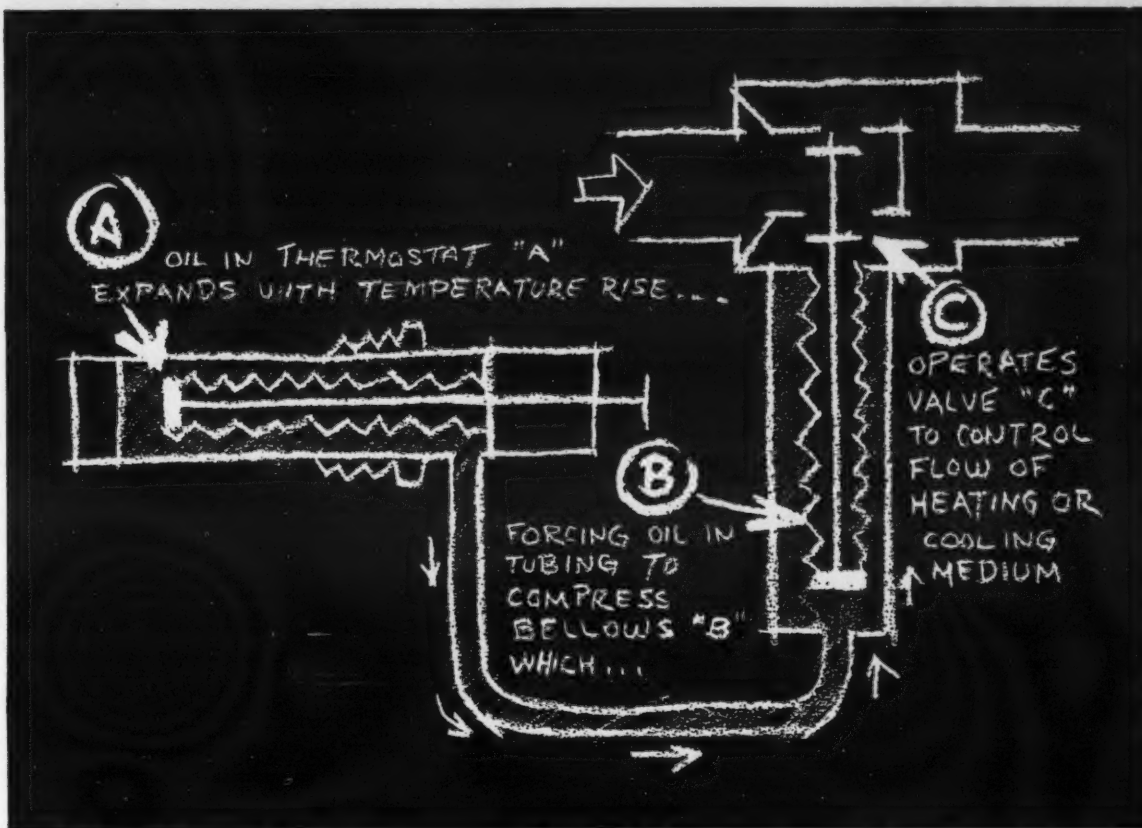 A
OIL IN THERMOSTAT "A"
EXPANDS WITH TEMPERATURE RISE....
B
FORCING OIL IN
TUBING TO
COMPRESS
BELLOWS "B"
WHICH...
C
OPERATES
VALVE "C"
TO CONTROL
FLOW OF
HEATING OR
COOLING
MEDIUM